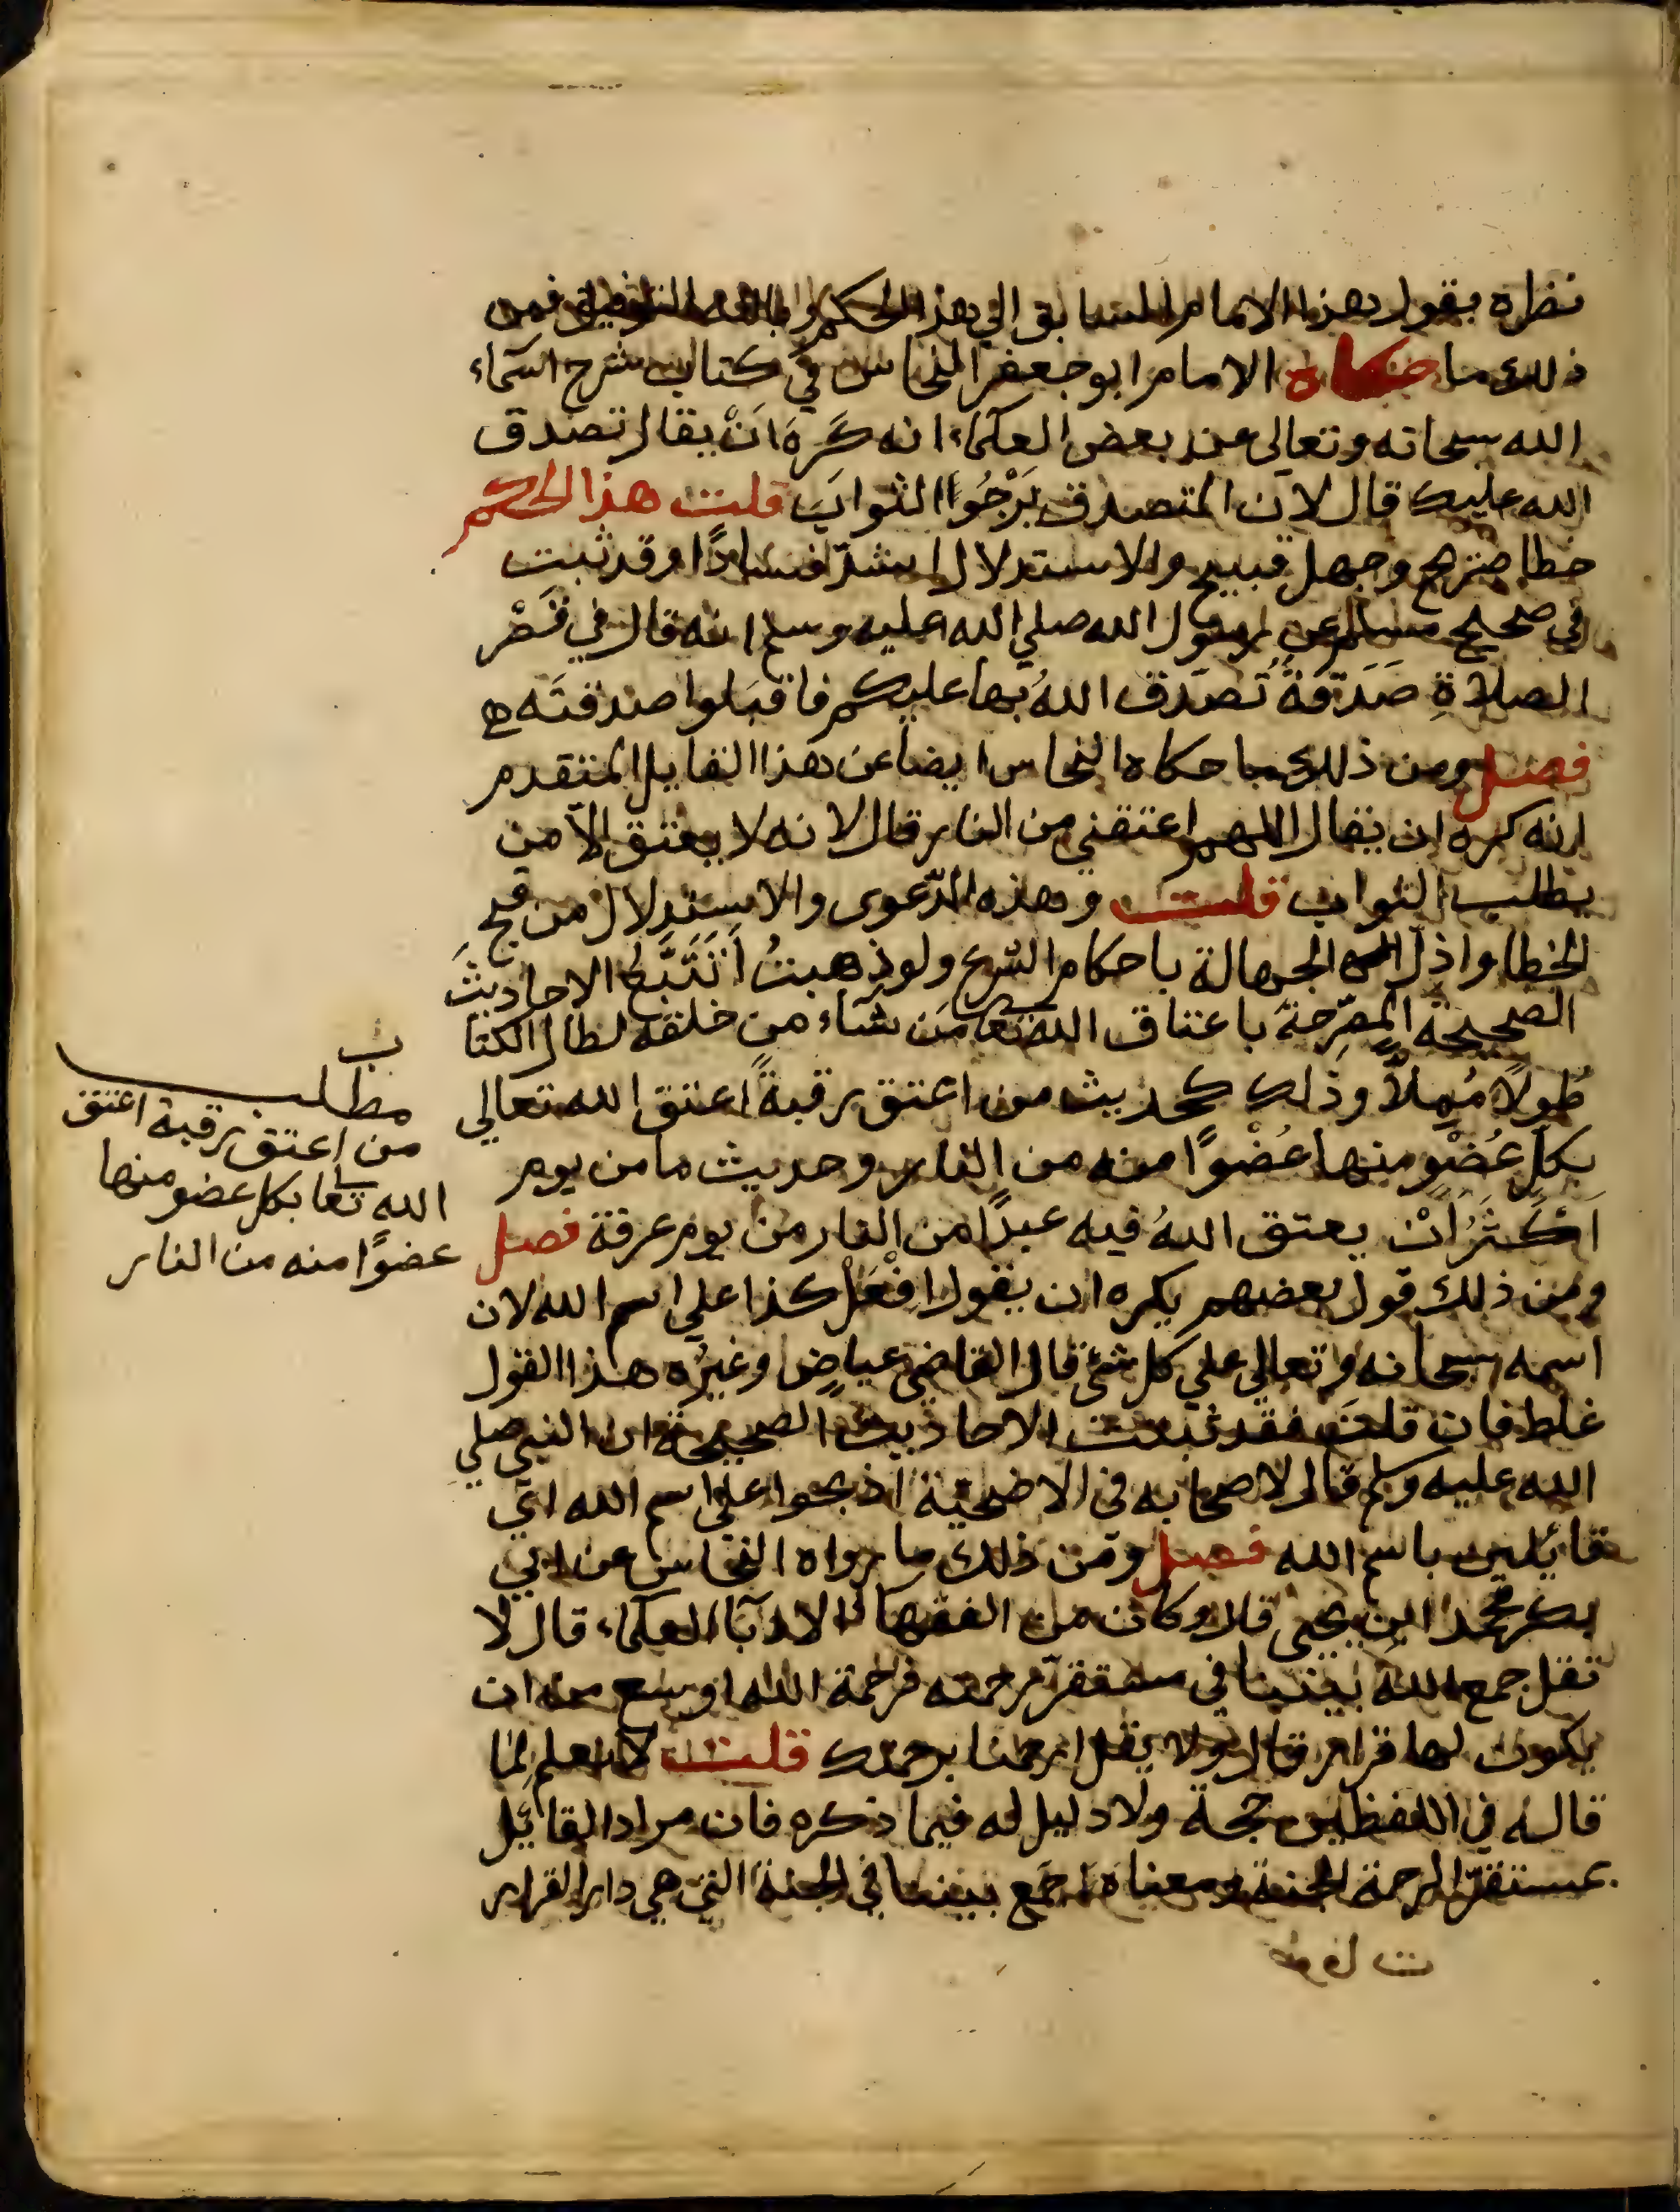 نظره بقول هذا الامام السابق الي هذا الحكم وبالله التوفيق فمن
ذلك ما حكاه الامام ابو جعفر النحاس في كتاب شرح اسماء
الله سبحانه وتعالى عن بعض العلماء انه كَرِهَ اَنْ يقال تصدق
الله عليك قال لان المتصدق يَرْجُوا الثوابَ قلت هذا الحكم
خطا صريح وجهل قبيح والاستدلال اشدّ فسادًا وقد ثبت
في صحيح مسلم عن رسول الله صلي الله عليه وسلم انه قال في قَصْر
الصلاةِ صَدَقةٌ تَصَدّق اللهُ بها عليكم فاقبَلوا صدقتَه
فصل ومن ذلك ما حكاه النحاس ايضا عن هذا القايل المتقدم
انه كره ان يقال اللهم اعتقني من النار قال لانه لا يعتق الا من
يطلب الثواب قلت وهذه الدّعوى والاستدلال من قبيح
الخطا واذل الجهالة باحكام الشرع ولو ذهبتُ اَتَتَبَّعُ الاحاديثَ
الصحيحة المصرّحة باعتاق الله تعا مَن شآء من خلقه لطال الكتا
ب
طُولًا مُمِلاًّ وذلك كحديث من اعتق رقبةً اعتق الله تعالي
بكلّ عُضْوٍ منها عُضْوًا منه من النار وحديث ما من يوم
اَكْثَرُ اَنْ يعتق اللهُ فيه عبدًا من النار من يوم عرفة فصل
ومن ذلك قول بعضهم يكره ان يقول افْعَلْ كذا علي اسم الله لان
اسمه سبحانه وتعالي علي كل شئ قال القاضي عياض وغيرُه هذا القول
غلط فان قلت فقد ثبتت الاحاديث الصحيحة ان النبي صلي
الله عليه وسلم قال لاصحابه في الاضحيّة اذبحوا علي اسم الله اي
قائلين باسم الله فصل ومن ذلك ما رواه النحاس عن ابي
بكر محمد ابن يحيى قال وكان من الفقها الادبآ العلماء قال لا
تقل جمع اللهُ بيننا في مستقرّ رحمته فرحمة الله اوسع من ان
يكون لها قرار قال ولا يقل ارحمنا برحمتك قلت لا نعلم لما
قاله في اللفظين حجة ولا دليل له فيما ذكره فان مراد القائل
بمستقرّ الرحمة الجنة ومعناه جَمَع بيننا في الجنة التي هي دار القرار
مطلب
من اعتق رقبة اعتق
الله تعا بكل عضو منها
عضوًا منه من النار